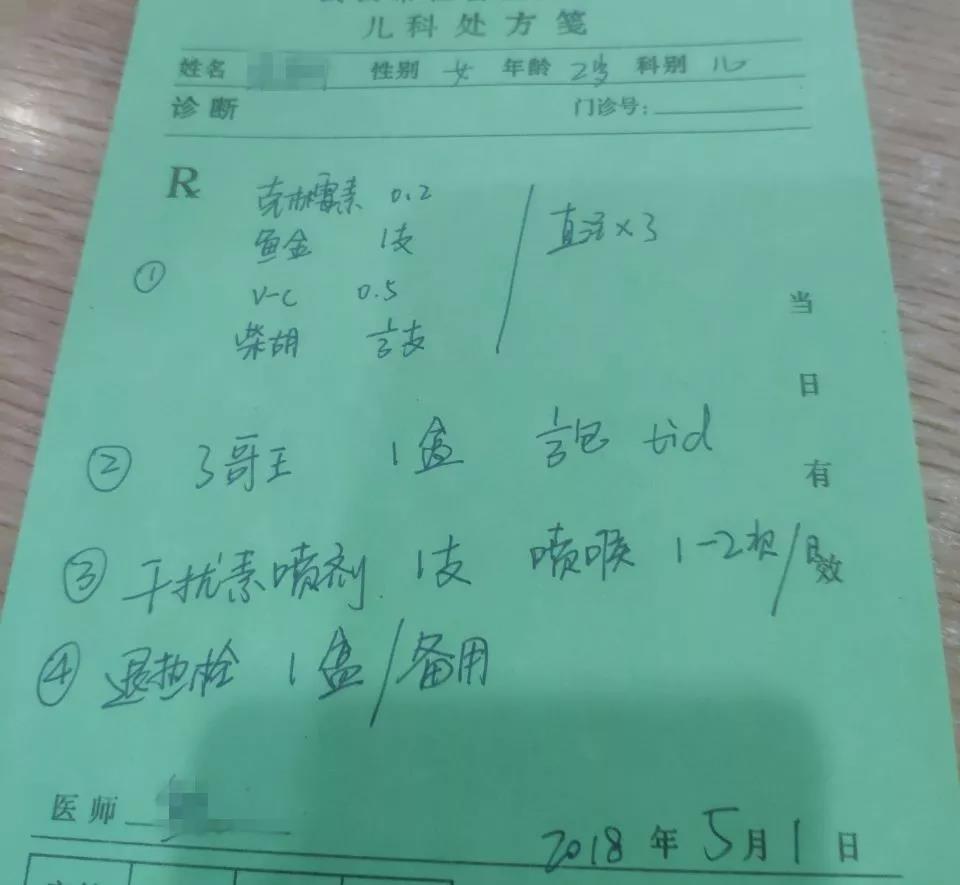 儿科处方笺
姓名 性别 女 年龄 2岁 科别 儿
诊断 门诊号:
R
① 克林霉素 0.2
鱼金 1支
V-C 0.5
柴胡 1/3支
直注×3
② 3哥王 1盒 1/3包 tid
③ 干扰素喷剂 1支 喷喉 1-2次/日
④ 退热栓 1盒/备用
当日有效
医师
2018年5月1日